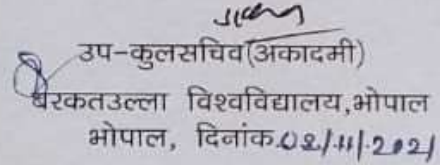 उप-कुलसचिव(अकादमी)
बरकतउल्ला विश्वविद्यालय,भोपाल
भोपाल, दिनांक.02/11/2021